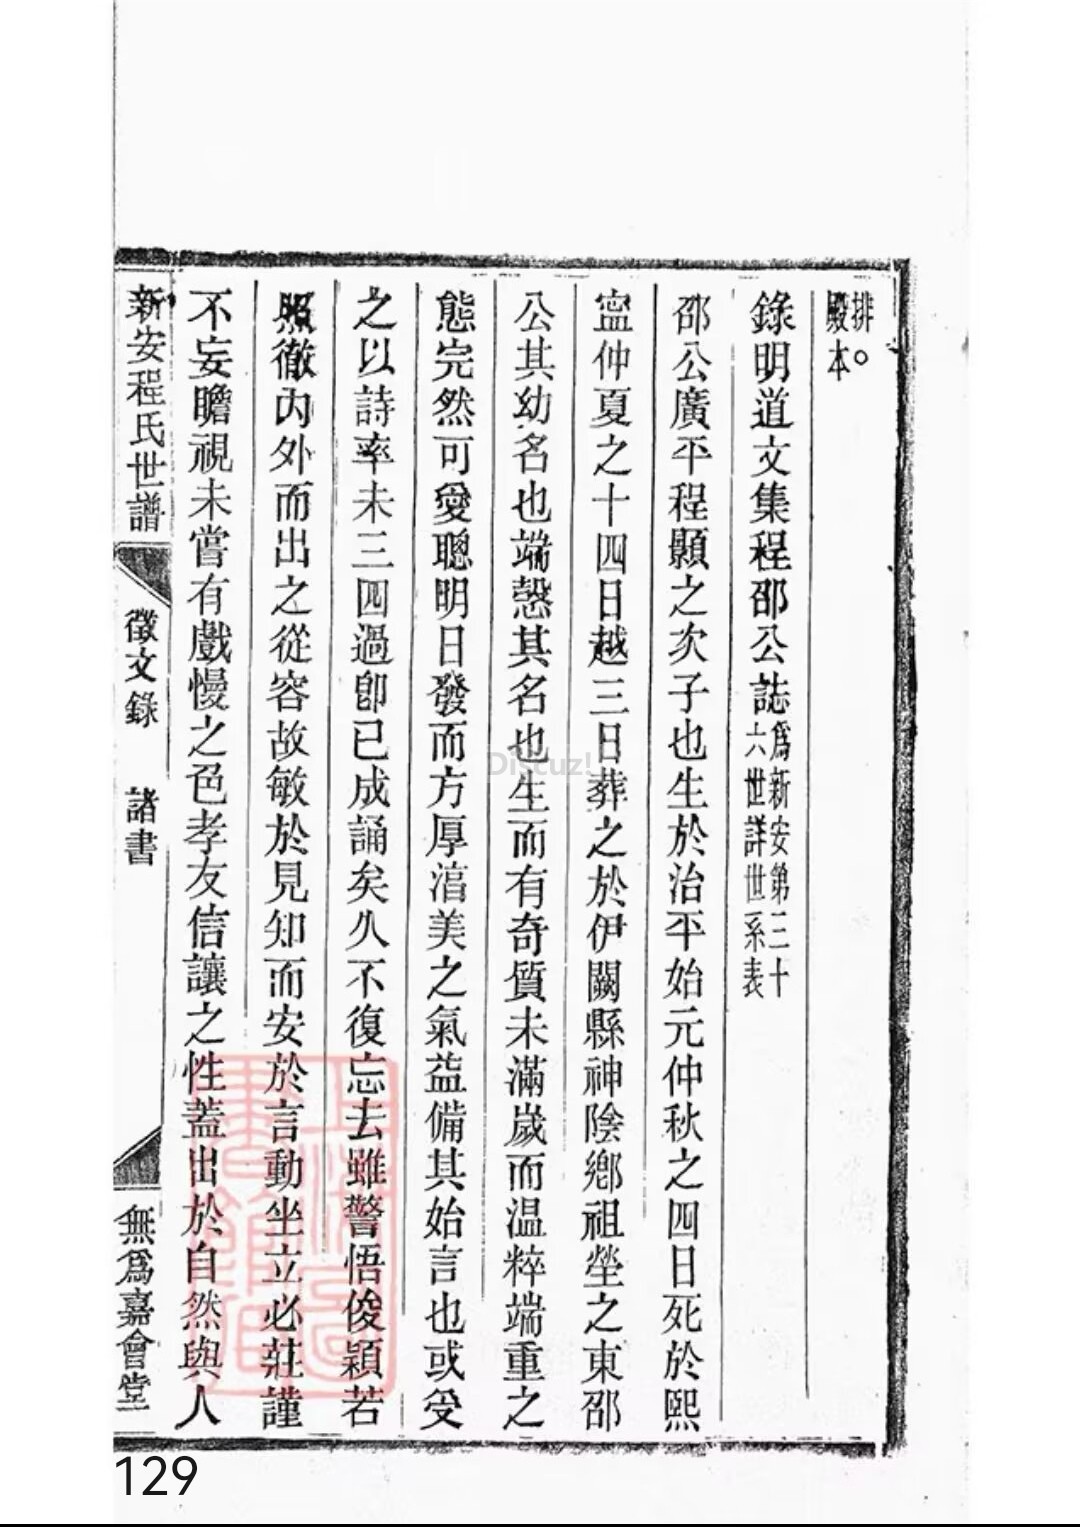 排
殿本
錄明道文集程邵公誌爲新安第三十
六世詳世系表
邵公廣平程顥之次子也生於治平始元仲秋之四日死於熙
寍仲夏之十四日越三日葬之於伊闕縣神陰鄉祖塋之東邵
公其幼名也端慤其名也生而有奇質未滿歲而温粹端重之
態完然可愛聰明日發而方厚淳美之氣益備其始言也或受
之以詩率未三四過卽已成誦矣久不復忘去雖警悟俊穎若
照徹內外而出之從容故敏於見知而安於言動坐立必莊謹
不妄瞻視未嘗有戲慢之色孝友信讓之性蓋出於自然與人
新安程氏世譜 徵文錄 諸書 無爲嘉會堂
Discuz!
129